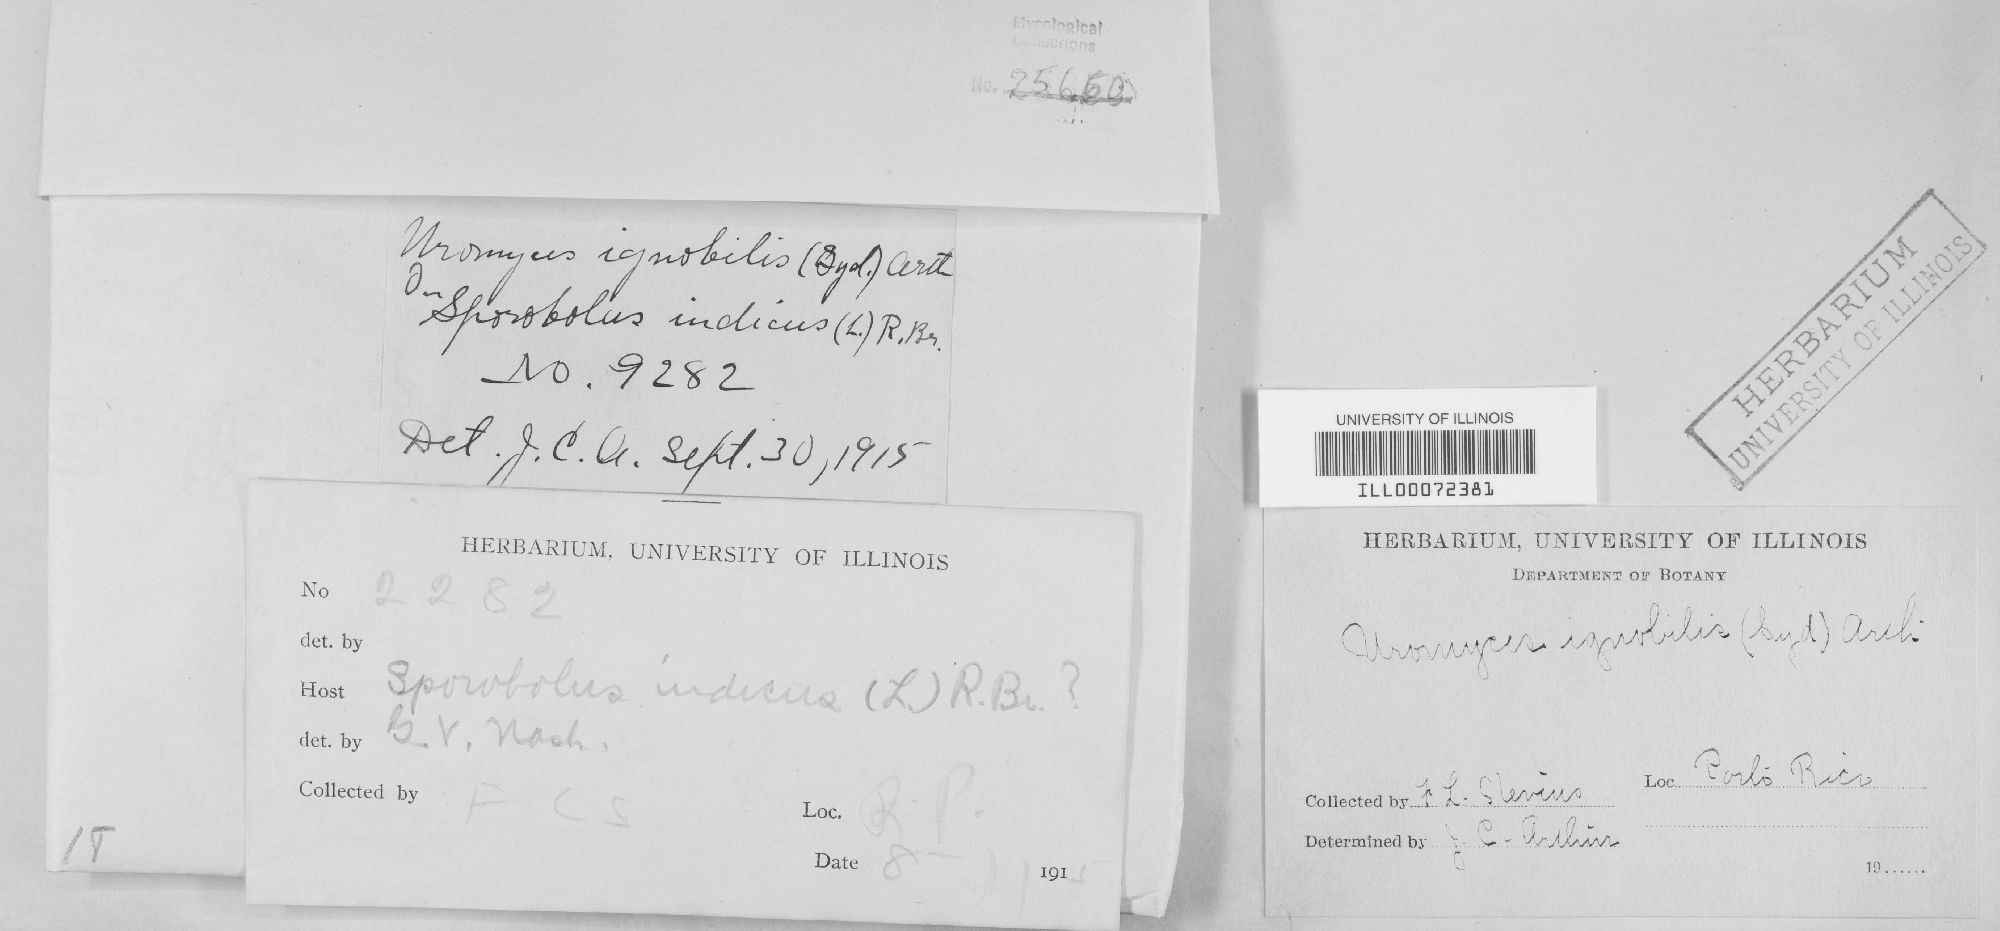 Mycological
Collections
No. 25660
Uromyces ignobilis (Syd.) Arth
On
Sporobolus indicus (L.) R. Br.
No. 9282
Det. J. C. A. Sept. 30, 1915
HERBARIUM, UNIVERSITY OF ILLINOIS
No 2282
det. by
Host Sporobolus indicus (L.) R. Br. ?
det. by G. V. Nash.
Collected by
Loc.
Date 8 1915
1T
HERBARIUM
UNIVERSITY OF ILLINOIS
UNIVERSITY OF ILLINOIS
ILL00072381
HERBARIUM, UNIVERSITY OF ILLINOIS
DEPARTMENT OF BOTANY
Uromyces ignobilis (Syd) Arth
Loc Porto Rico
Collected by F L. Stevens
Determined by J. C. Arthur
19......